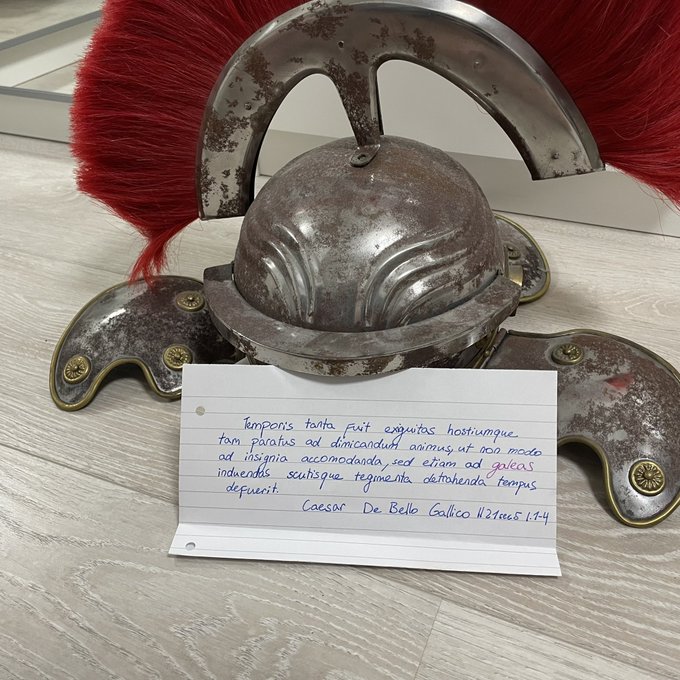 Temporis tanta fuit exiguitas hostiumque
tam paratus ad dimicandum animus, ut non modo
ad insignia accomodanda, sed etiam ad galeas
induendas scutisque tegimenta detrahenda tempus
defuerit.
Caesar De Bello Gallico II.21 sec 5 l.1-4